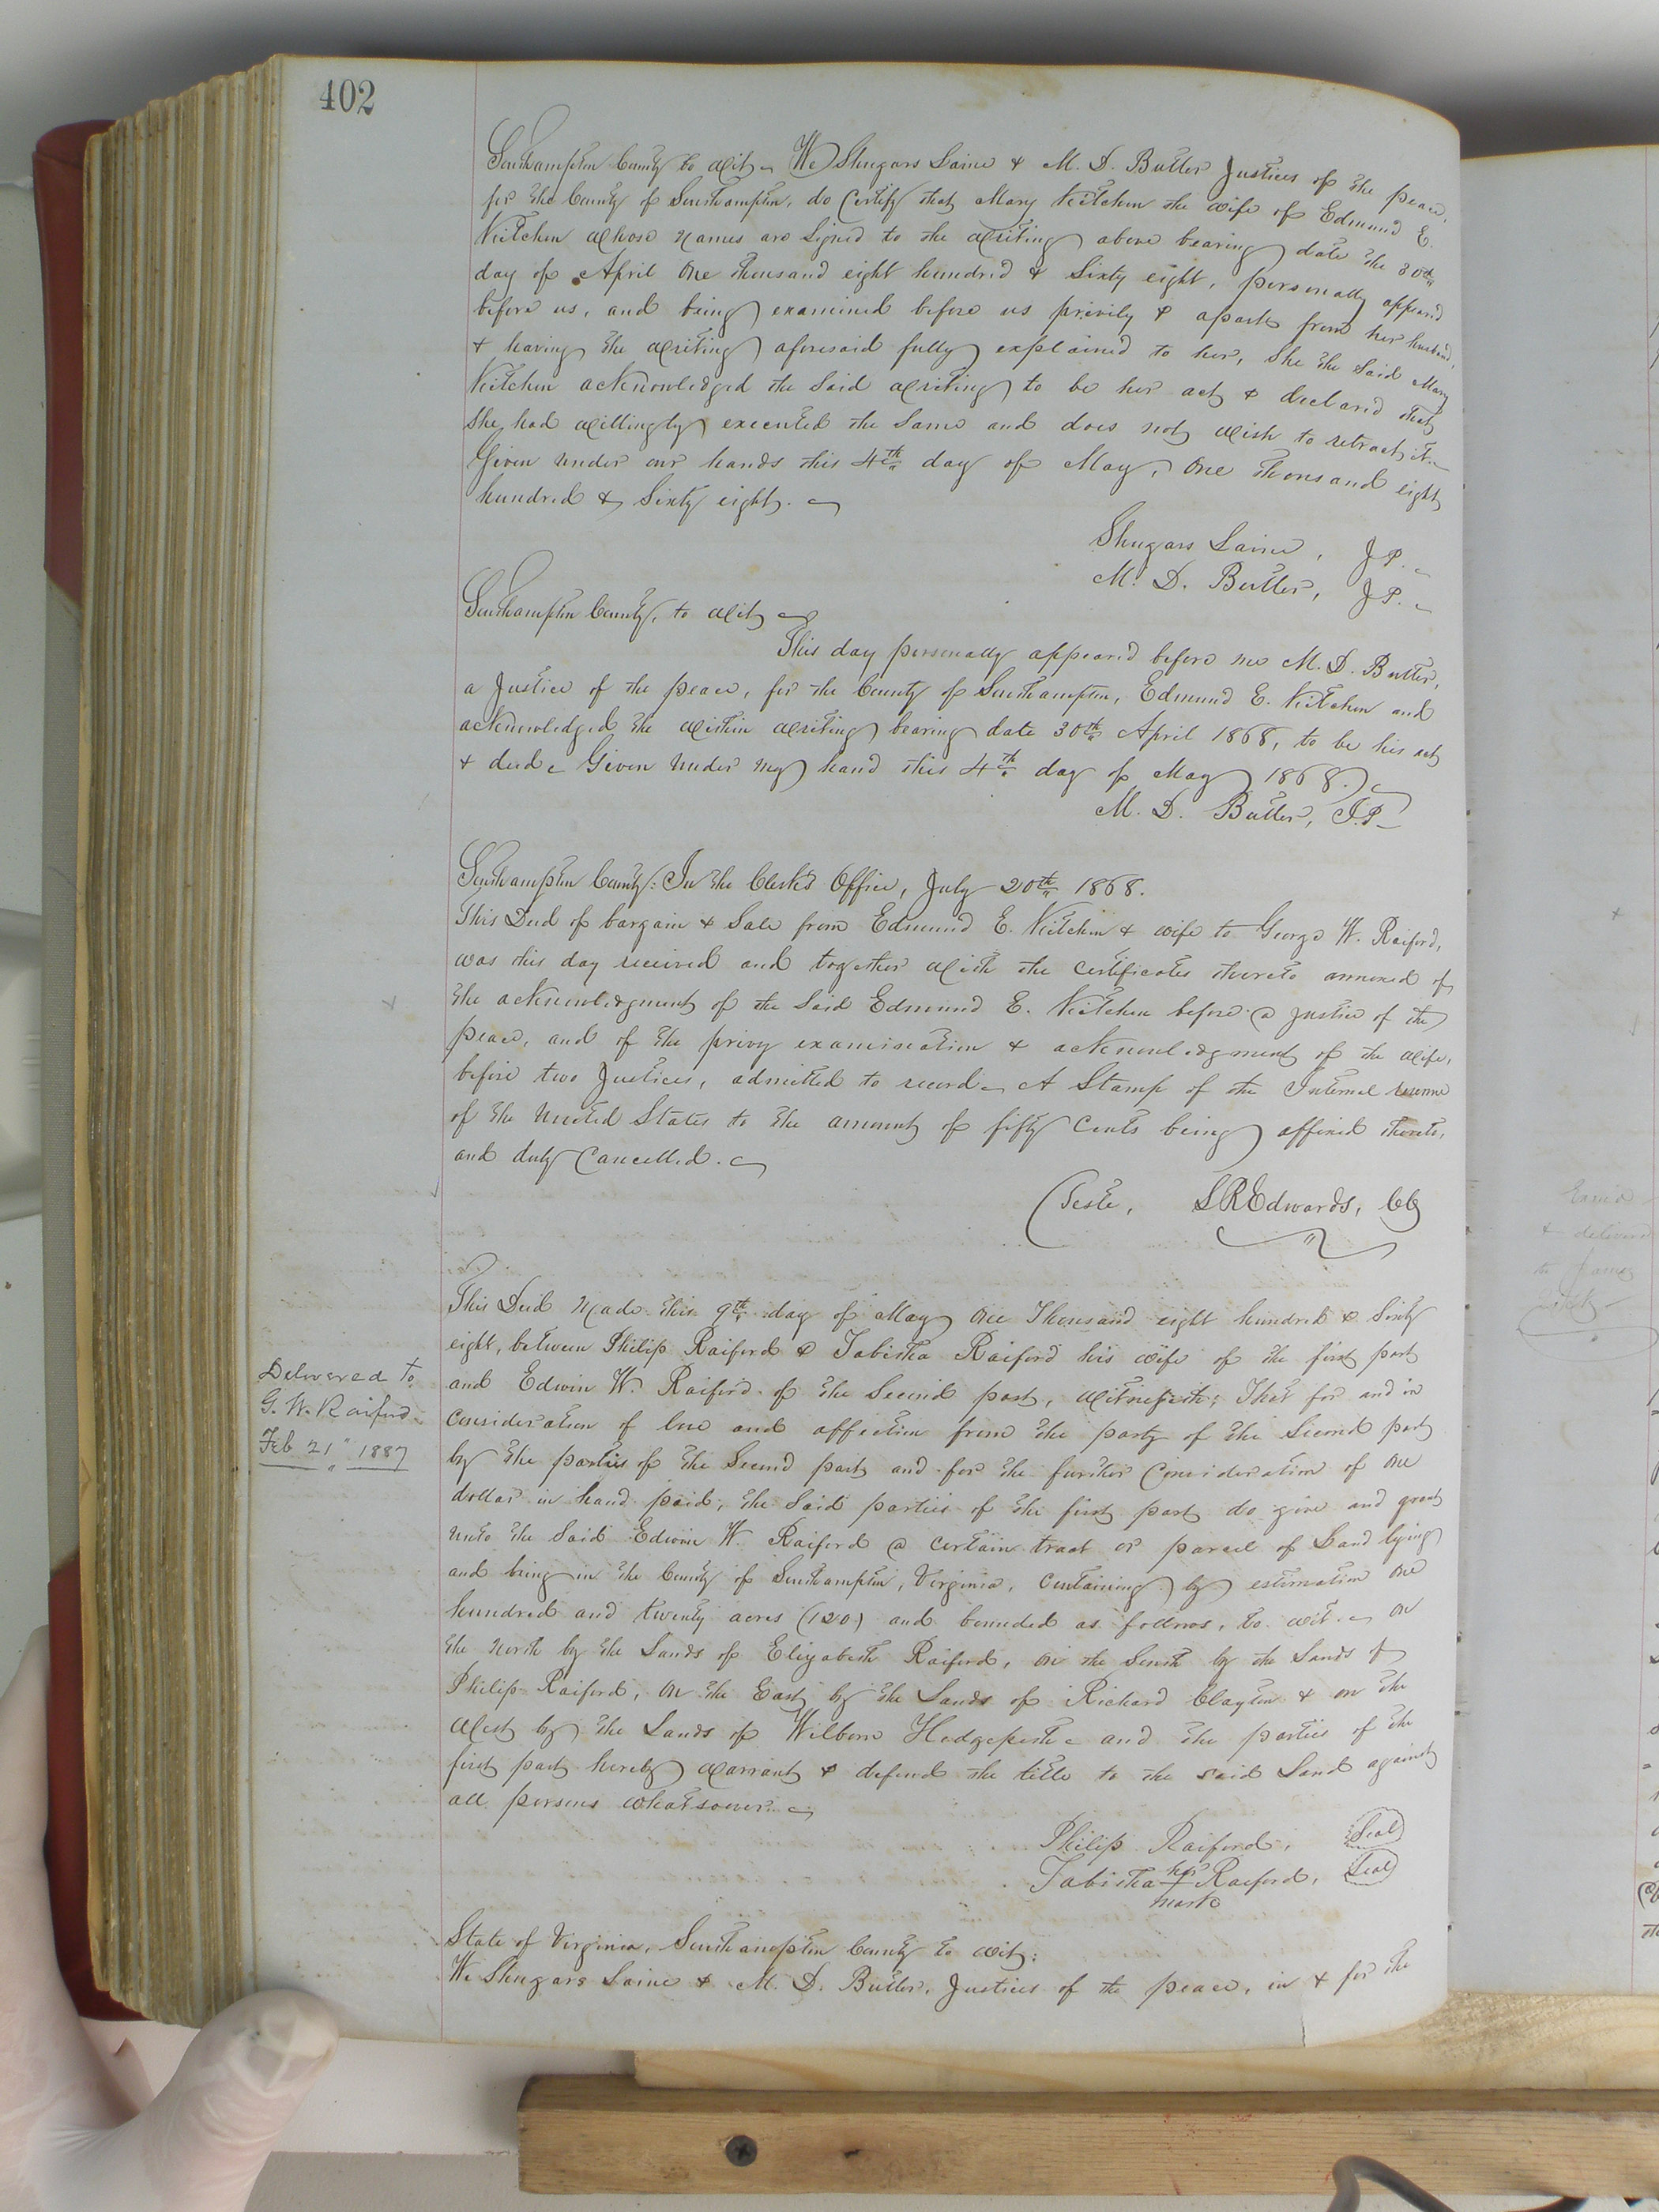 402
Southampton County to wit, We Shugars Laine & M. D. Butler Justices of the peace,
for the County of Southampton, do Certify that Mary Kitchen the wife of Edmund E.
Kitchen whose names are signed to the writing above bearing date the 30th
day of April One thousand eight hundred & Sixty eight, personally appeared
before us, and being examined before us privily & apart from her husband,
& having the writing aforesaid fully explained to her, She the said Mary
Kitchen acknowledged the said writing to be her act & declared that
She had willingly executed the same and does not wish to retract it.
Given under our hands this 4th day of May, One thousand eight
hundred & Sixty eight.
Shugars Laine, J.P.
M. D. Butler, J.P.
Southampton County, to wit
This day personally appeared before me M. D. Butler,
a Justice of the peace, for the County of Southampton, Edmund E. Kitchen and
acknowledged the within writing bearing date 30th April 1868, to be his act
& deed. Given under my hand this 4th day of May 1868.
M. D. Butler, J.P.
Southampton County: In the Clerk's Office, July 20th 1868.
This Deed of bargain & Sale from Edmund E. Kitchen & wife to George W. Raiford,
was this day received and together with the certificates thereto annexed of
the acknowledgment of the said Edmund E. Kitchen before a Justice of the
peace, and of the privy examination & acknowledgment of the wife,
before two Justices, admitted to record. A Stamp of the Internal revenue
of the United States to the amount of fifty Cents being affixed thereto,
and duly Cancelled.
Teste, LREdwards, CC
This Deed made this 9th day of May One Thousand eight hundred & Sixty
eight, between Philip Raiford & Tabitha Raiford his wife of the first part
and Edwin W. Raiford of the Second part, witnesseth; That for and in
Consideration of love and affection from the party of the Second part
by the parties of the Second part and for the further Consideration of One
dollar in hand paid, the said parties of the first part do give and grant
unto the said Edwin W. Raiford a certain tract or parcel of Land lying
and being in the County of Southampton, Virginia, Containing by estimation One
hundred and twenty acres (120) and bounded as follows, to wit. On
the North by the Lands of Elizabeth Raiford, on the South by the Lands of
Philip Raiford, on the East by the Lands of Richard Clayton & on the
West by the Lands of Wilborn Hedgepeth and the parties of the
first part hereby warrant & defend the title to the said Land against
all persons whatsoever.
Delivered to
G. W. Raiford
Feb 21" 1887
Philip Raiford, Seal
Tabitha her + mark Raiford, Seal
State of Virginia, Southampton County to wit:
We Shugars Laine & M. D. Butler, Justices of the peace, in & for the